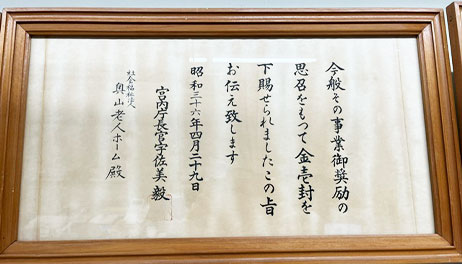 今般その事業御奨励の
思召をもつて金壱封を
下賜せられましたこの旨
お伝え致します
昭和三十六年四月二十九日
宮内庁長官宇佐美毅
社会福祉法人
奥山老人ホーム殿